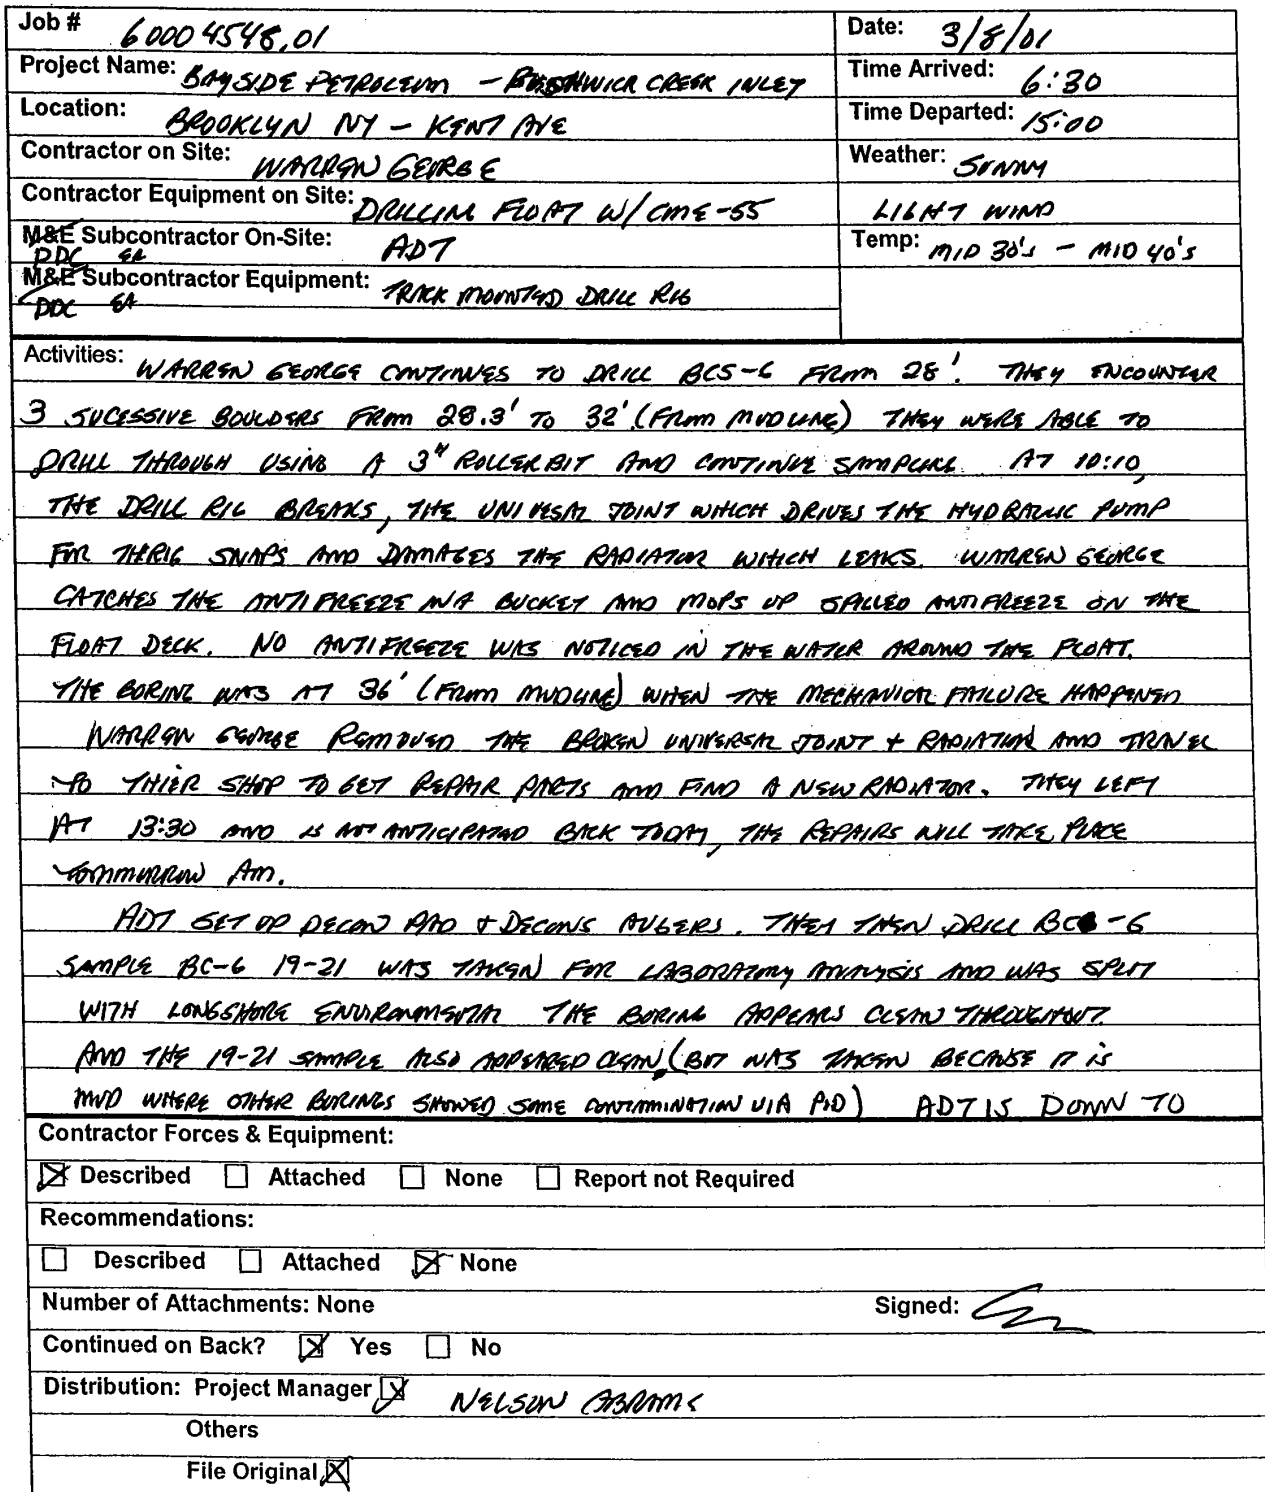 Job # 60004548.01 Date: 3/8/01
Project Name: BAYSIDE PETROLEUM - BUSHWICK CREEK INLET Time Arrived: 6:30
Location: BROOKLYN NY - KENT AVE Time Departed: 15:00
Contractor on Site: WARREN GEORGE Weather: SUNNY
Contractor Equipment on Site: DRILLING FLOAT W/ CME-55 LIGHT WIND
M&E Subcontractor On-Site: ADT Temp: MID 30's - MID 40's
DDC
M&E Subcontractor Equipment: TRACK MOUNTED DRILL RIG
DDC
Activities: WARREN GEORGE CONTINUES TO DRILL BCS-6 FROM 28'. THEY ENCOUNTER
3 SUCESSIVE BOULDERS FROM 28.3' TO 32' (FROM MUDLINE) THEY WERE ABLE TO
DRILL THROUGH USING A 3" ROLLER BIT AND CONTINUE SAMPLING. AT 10:10,
THE DRILL RIG BREAKS, THE UNIVESAL JOINT WHICH DRIVES THE HYDRAULIC PUMP
FOR THERIG SNAPS AND DAMAGES THE RADIATOR WHICH LEAKS. WARREN GEORGE
CATCHES THE ANTIFREEZE IN A BUCKET AND MOPS UP SPILLED ANTIFREEZE ON THE
FLOAT DECK. NO ANTIFREEZE WAS NOTICED IN THE WATER AROUND THE FLOAT.
THE BORING WAS AT 36' (FROM MUDLINE) WHEN THE MECHANICAL FAILURE HAPPENED
WARREN GEORGE REMOVED THE BROKEN UNIVERSAL JOINT + RADIATOR AND TRAVEL
TO THIER SHOP TO GET REPAIR PARTS AND FIND A NEW RADIATOR. THEY LEFT
AT 13:30 AND IS NOT ANTICIPATED BACK TODAY, THE REPAIRS WILL TAKE PLACE
TOMMORROW AM.
ADT SET UP DECON PAD + DECONS AUGERS. THEY THEN DRILL BC-6
SAMPLE BC-6 19-21 WAS TAKEN FOR LABORATORY ANALYSIS AND WAS SPLIT
WITH LONGSHORE ENVIRONMENTAL THE BORING APPEARS CLEAN THROUGHOUT.
AND THE 19-21 SAMPLE ALSO APPEARED CLEAN, (BUT WAS TAKEN BECAUSE IT IS
MUD WHERE OTHER BORINGS SHOWED SOME CONTAMINATION VIA PID) ADT IS DOWN TO
Contractor Forces & Equipment:
Described Attached None Report not Required
Recommendations:
Described Attached None
Number of Attachments: None Signed:
Continued on Back? Yes No
Distribution: Project Manager NELSON ABRAMS
Others
File Original